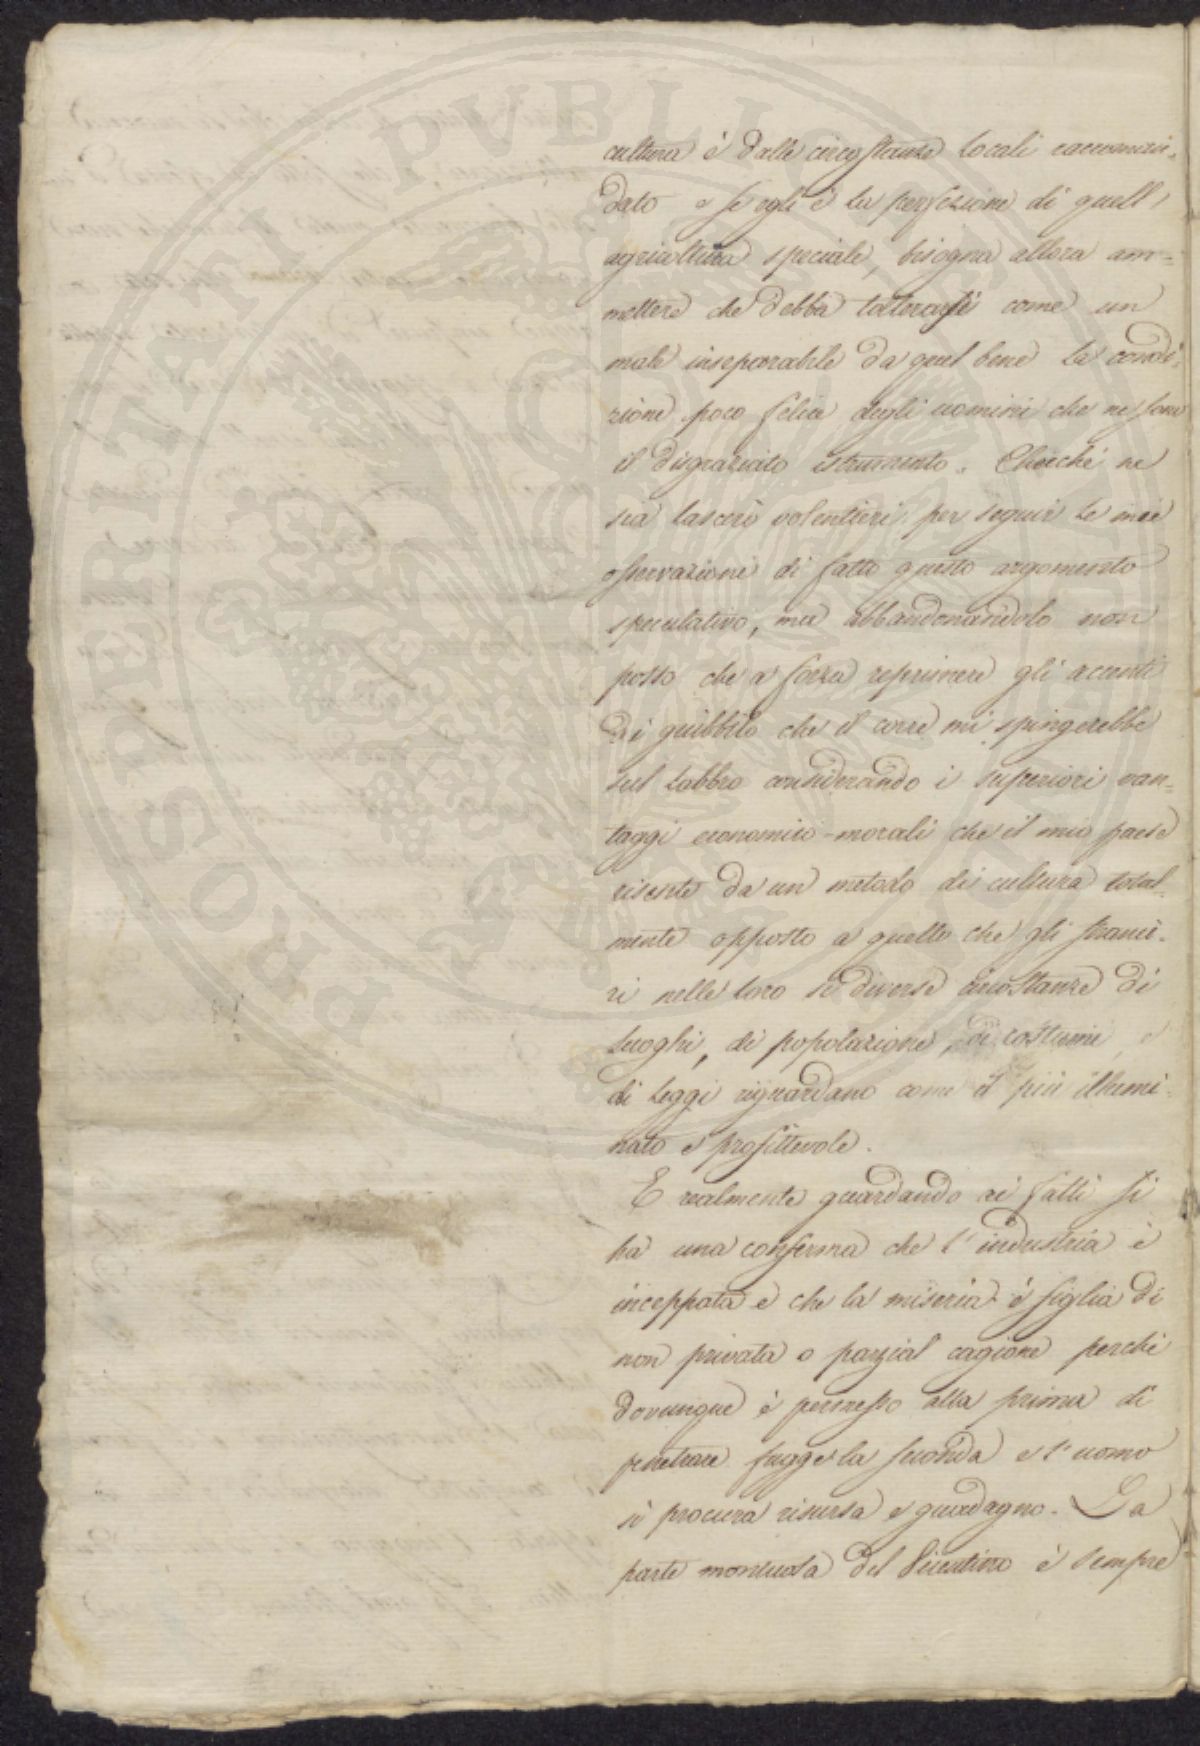 cultura è dalle circostanze locali raccoman=
dato e se egli è la perfezione di quell'
agricoltura speciale, bisogna allora am=
mettere che debba tollerarsi come un
male inseparabile da quel bene la condi=
zione poco felice degli uomini che ne sono
il disgraziato istrumento. Checchè ne
sia lascerò volentieri per seguir le mie
osservazioni di fatto questo argomento
speculativo, ma abbandonandolo non
posso che a forza reprimere gli accenti
di guibbilo che il core mi spingerebbe
sul labbro considerando i superiori van=
taggi economico-morali che il mio paese
risente da un metodo di cultura total=
mente opposto a quello che gli stranie=
ri nelle loro sì diverse circostanze di
luoghi, di popolazione, di costumi, e
di leggi riguardano come il più illumi=
nato e profittevole.
E realmente guardando ai fatti si
ha una conferma che l'industria è
inceppata e che la miseria è figlia di
non privata o parzial cagione perchè
dovunque è permesso alla prima di
penetrare fugge la seconda e l'uomo
si procura risorsa e guadagno. La
parte montuosa del è sempre
PROSPERITATI PVBLICAE